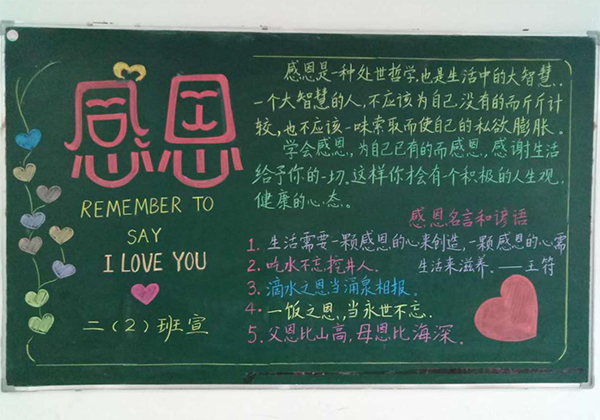 感恩
REMEMBER TO
SAY
I LOVE YOU
二（2）班宣
感恩是一种处世哲学,也是生活中的大智慧.
一个大智慧的人,不应该为自己没有的而斤斤计
较,也不应该一味索取而使自己的私欲膨胀.
学会感恩,为自己已有的而感恩,感谢生活
给予你的一切.这样你才会有个积极的人生观,
健康的心态。
感恩名言和谚语
1. 生活需要一颗感恩的心来创造,一颗感恩的心需
生活来滋养.——王符
2. 吃水不忘挖井人.
3. 滴水之恩当涌泉相报.
4. 一饭之恩,当永世不忘.
5. 父恩比山高,母恩比海深.